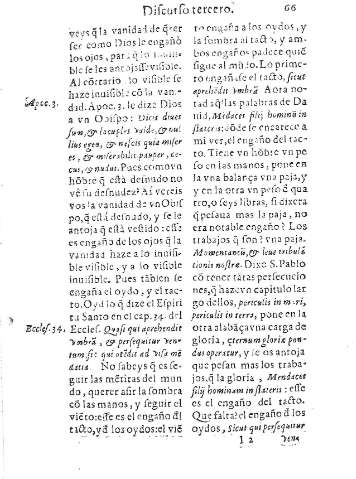 Discurso tercero.
66
veys q̃ la vanidad de q̃rer
ser como Dios le engañò
los ojos, para q̃ lo inuisi-
ble se les antojasse visible.
Al cōtrario lo visible se
haze inuisible cō la van-
Apoc. 3.
dad. Apoc. 3. le dize Dios
a vn Obispo: Dicis diues
sum, & locuples valde, & nul-
lius egeo, & nescis quia miser
es, & miserabilis pauper, cæ-
cus, & nudus. Pues como vn
hōbre q̃ està desnudo no
vè su desnudez? Ai vereis
vos la vanidad de vn Obis-
po, q̃ està desnudo, y se le
antoja q̃ està vestido: esse
es engaño de los ojos q̃ la
vanidad haze a lo inuisi-
ble visible, y a lo visible
inuisible. Pues tābien se
engaña el oydo, y el tac-
to. Oyd lo q̃ dize el Espiri
tu Santo en el cap. 34. del
Eccles. 34.
Eccles. Quasi qui aprehendit
vmbrā, & persequitur ven-
tum sic qui atēdit ad visa mē
dacia. No sabeys q̃ es se-
guir las mētiras del mun
do, querer asir la sombra
cō las manos, y seguir el
viēto: esse es el engaño dl̃
tacto, y d̃ los oydos: el viē
to engaña a los oydos, y
la sombra al tacto, y am-
bos engaños padece quiē
sigue al mūdo. Lo prime-
ro engañasse el tacto, sicut
aprehēdit vmbrā. Aora no-
tad q̃ las palabras de Da
uid, Mēdaces filij hominū in
stateris: dōde se encarece a
mi ver, el engaño del tac-
to. Tiene vn hōbre vn pe
so en las manos, pone en
la vna balança vna paja, y
y en la otra vn peso d̃ qua
tro, o seys libras, si dixera
q̃ pesaua mas la paja, no
era notable engaño? Los
trabajos q̃ son? vna paja.
Momentaneū, & leue tribula
tionis nostræ. Dixo S. Pablo
cō tener tātas persecucio
nes, q̃ haze vn capitulo lar
go dellos, periculis in mari,
periculis in terra, pone en la
otra alabāça vna carga de
gloria, æternum gloriæ pon-
dus operatur, y le os antoja
que pesan mas los traba-
jos, q̃ la gloria, Mendaces
filij hominum in stateris: esse
es el engaño del tacto.
Que falta? el engaño d̃ los
oydos, Sicut qui persequitur
I 2
vena